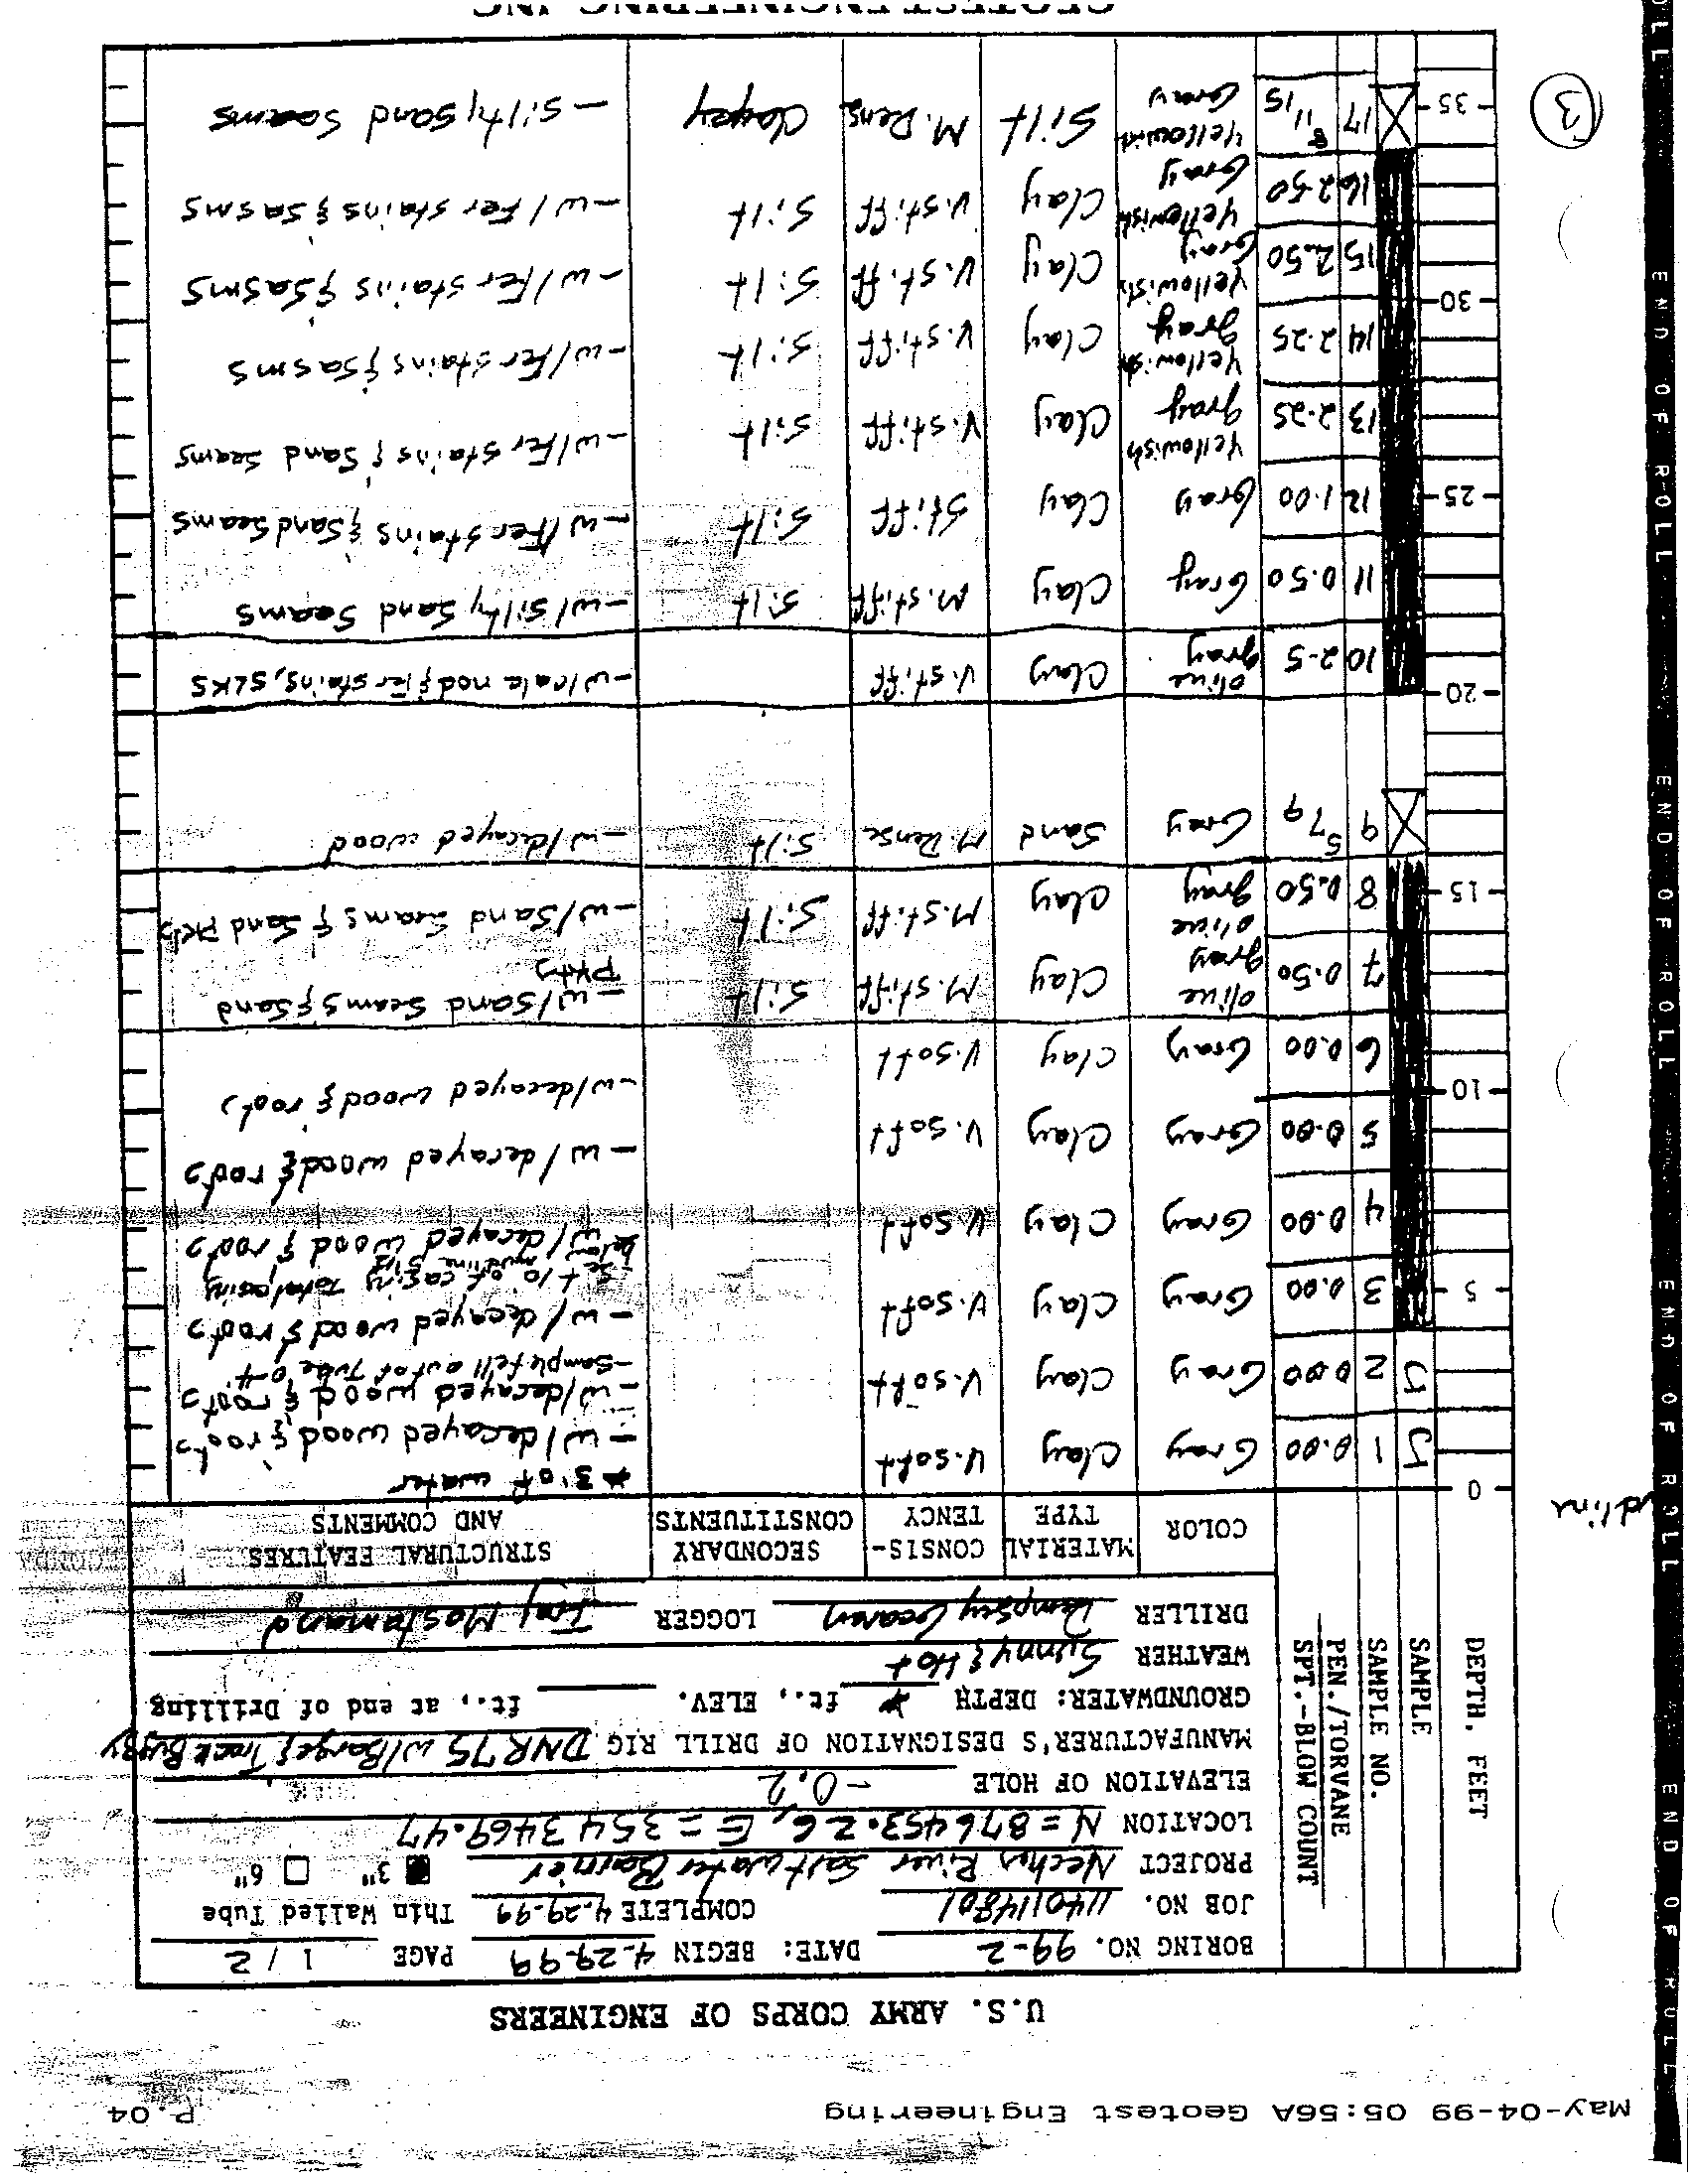 May-04-99 05:56A Geotest Engineering P.04
U.S. ARMY CORPS OF ENGINEERS
BORING NO. 99-2 DATE: BEGIN 4-29-99 PAGE 1 / 2
JOB NO. 1140114801 COMPLETE 4-29-99 Thin Walled Tube
PROJECT Neches River Saltwater Barrier 3" 6"
LOCATION N = 876453.26, E = 3543469.47
ELEVATION OF HOLE -0.2
MANUFACTURER'S DESIGNATION OF DRILL RIG DNR 75 w/Barge & Track Buggy
GROUNDWATER: DEPTH * ft., ELEV. ft., at end of Drilling
WEATHER Sunny & Hot
DRILLER Dempsey LOGGER
DEPTH, FEET
SAMPLE
SAMPLE NO.
PEN./TORVANE
SPT.-BLOW COUNT
COLOR MATERIAL TYPE CONSIS-TENCY SECONDARY CONSTITUENTS STRUCTURAL FEATURES AND COMMENTS
* 3' of water
0 J 1 0.00 Gray Clay V.soft - w/decayed wood & roots
J 2 0.00 Gray Clay V.soft - w/decayed wood & roots
- Sample fell out of Tube
5 3 0.00 Gray Clay V.soft - w/decayed wood & roots
Set 10' of casing Total casing
below mudline
4 0.00 Gray Clay V.soft w/decayed wood & roots
5 0.00 Gray Clay V.soft - w/decayed wood & roots
10 6 0.00 Gray Clay V.soft - w/decayed wood & roots
7 0.50 olive gray Clay M.stiff Silt - w/Sand Seams & Sand Pkts
15 8 0.50 olive gray Clay M.stiff Silt - w/Sand Seams & Sand Pkts
9 5 7 9 Gray Sand M.Dense Silt - w/decayed wood
20 10 2.5 olive gray Clay V.stiff - w/calc nod & Fer stains, SLKS
11 0.50 Gray Clay M.stiff Silt - w/Silty Sand Seams
25 12 1.00 Gray Clay Stiff Silt - w/Fer stains & Sand Seams
13 2.25 Yellowish gray Clay V.stiff Silt - w/Fer stains & Sand Seams
14 2.25 Yellowish gray Clay V.stiff Silt - w/Fer stains & Sasms
30 15 2.50 Yellowish Gray Clay V.stiff Silt - w/Fer stains & Sasms
16 2.50 Yellowish Gray Clay V.stiff Silt - w/Fer stains & Sasms
35 17 8 11 15 Yellowish Gray Silt M.Dens Clayey - Silty Sand Seams
3
GEOTEST ENGINEERING INC
END OF ROLL END OF ROLL END OF ROLL END OF ROLL